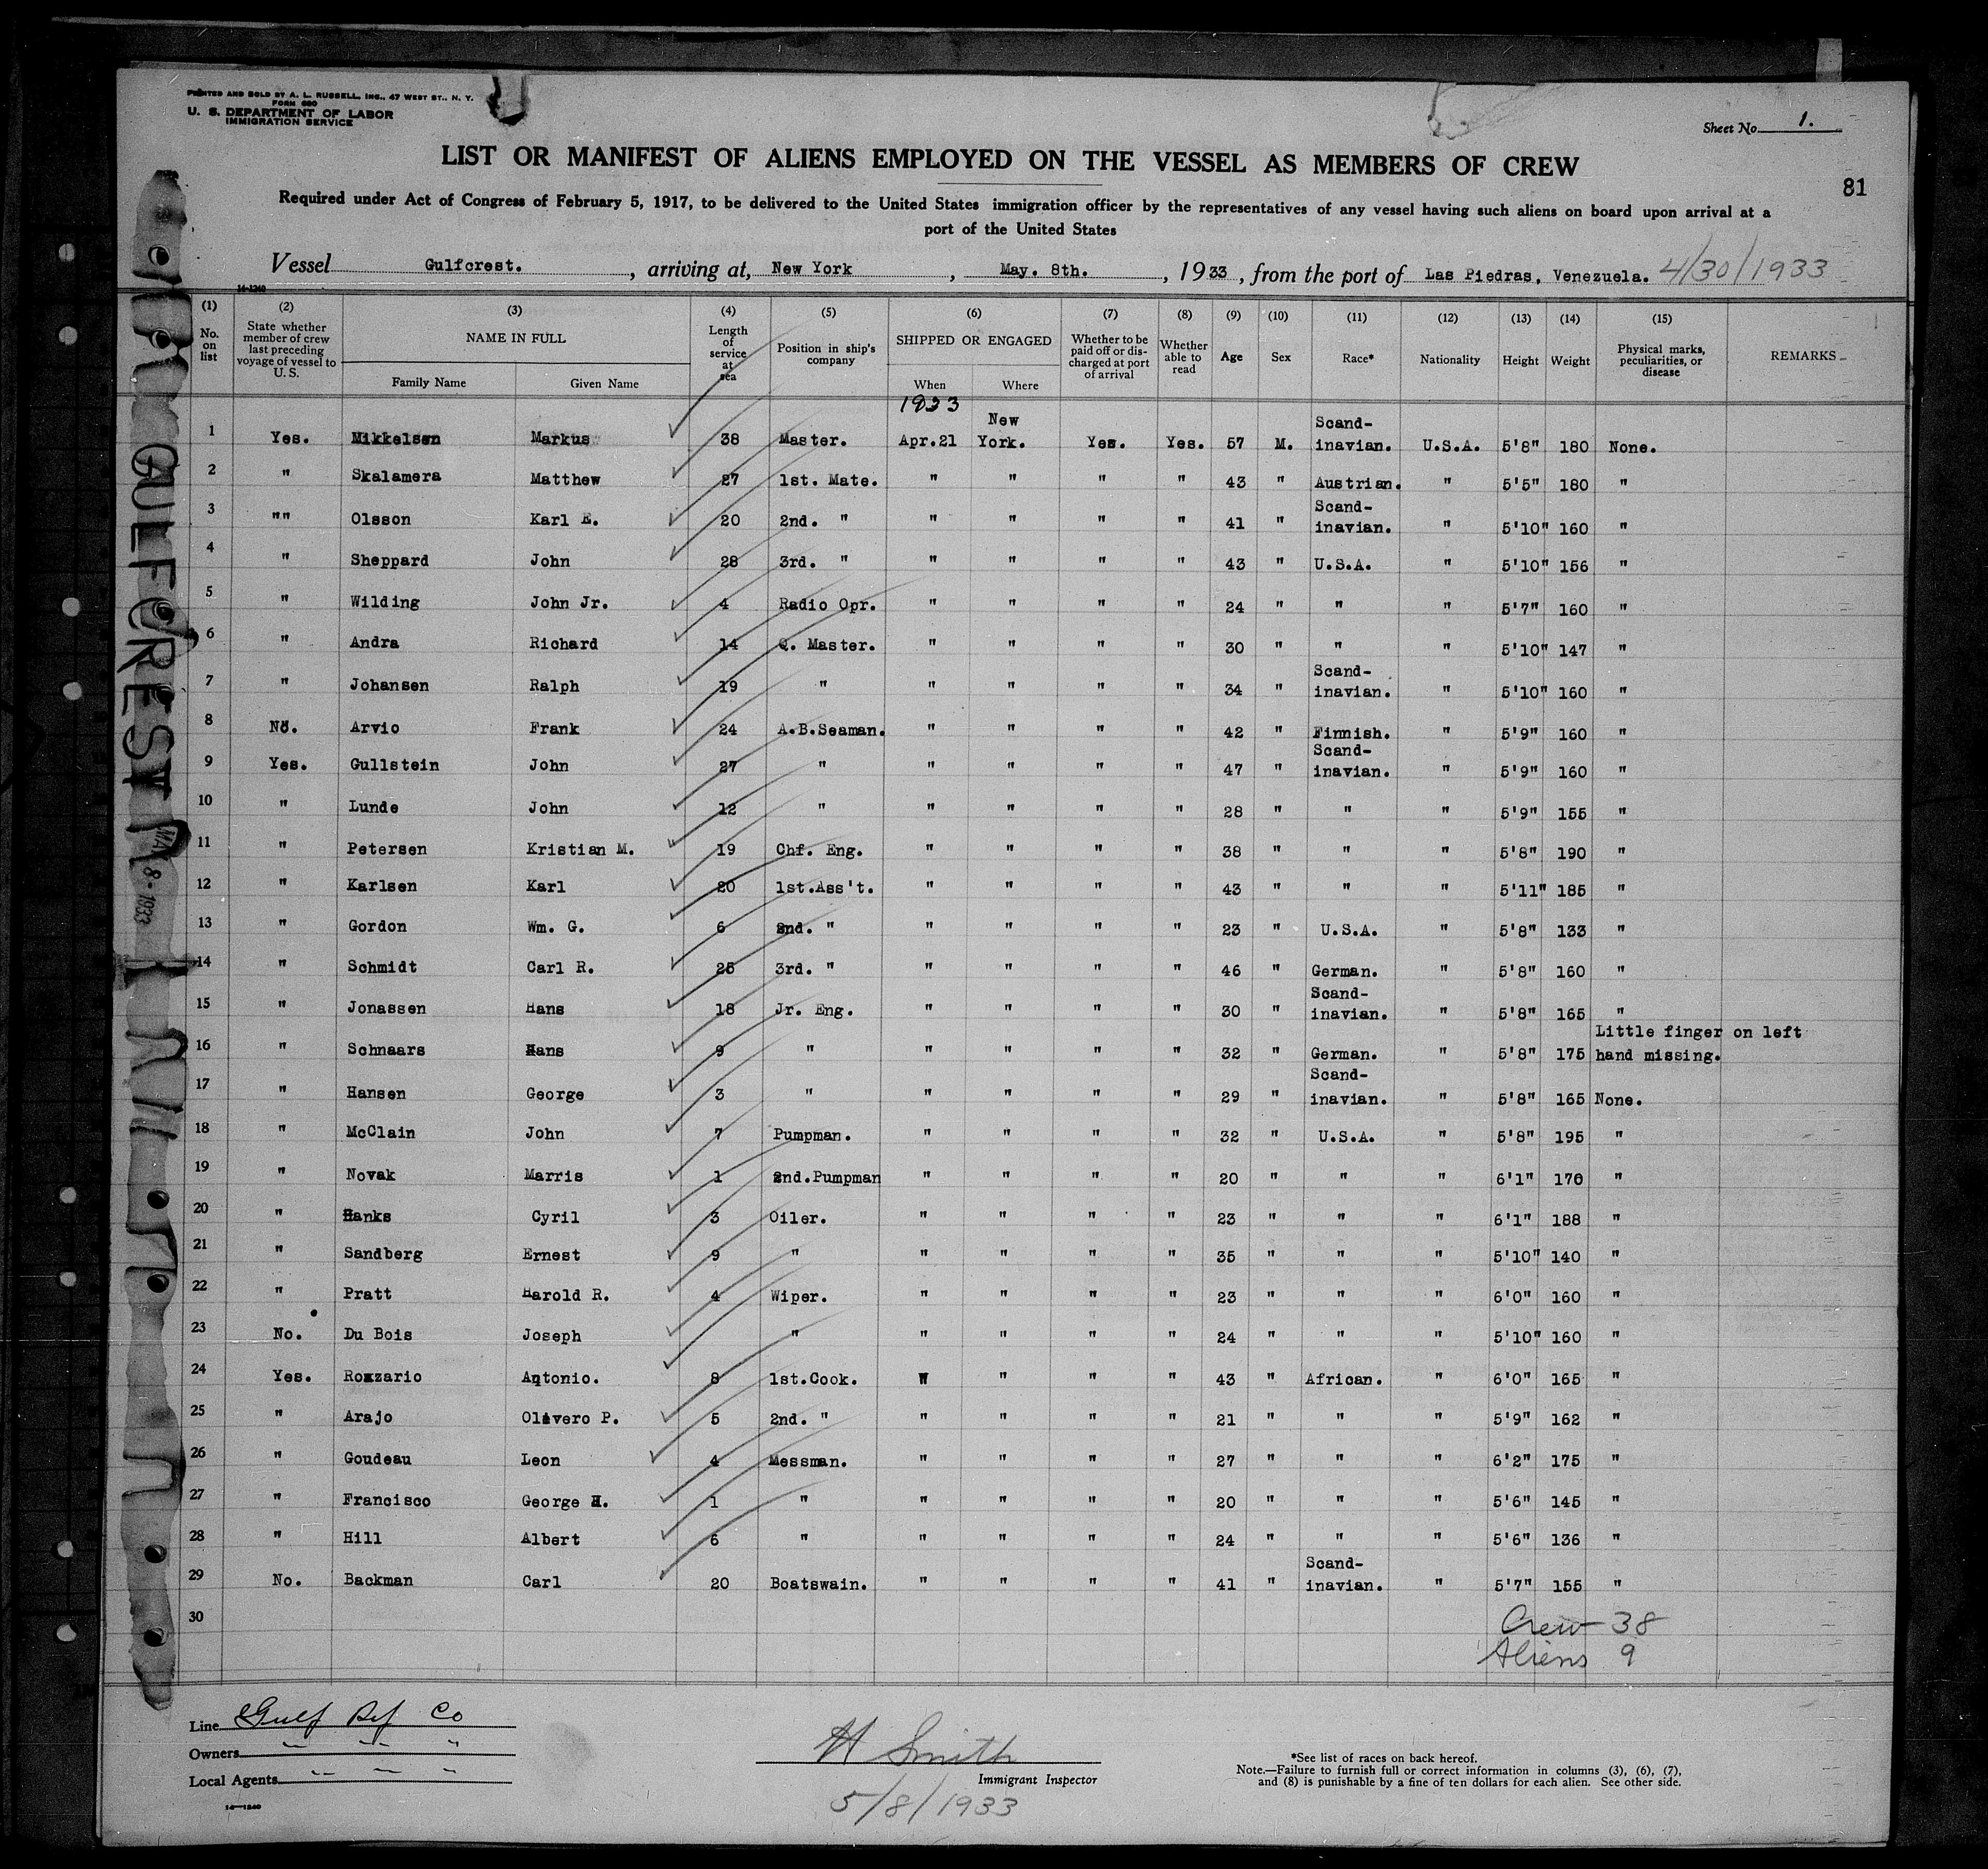 PRINTED AND SOLD BY A. L. RUSSELL, INC., 47 WEST ST., N. Y.
FORM 680
U. S. DEPARTMENT OF LABOR
IMMIGRATION SERVICE
Sheet No. 1.
LIST OR MANIFEST OF ALIENS EMPLOYED ON THE VESSEL AS MEMBERS OF CREW
81
Required under Act of Congress of February 5, 1917, to be delivered to the United States immigration officer by the representatives of any vessel having such aliens on board upon arrival at a
port of the United States
Vessel Gulfcrest. , arriving at, New York , May. 8th. , 1933, from the port of Las Piedras, Venezuela. 4/30/1933
14-1240
(1) (2) (3) (4) (5) (6) (7) (8) (9) (10) (11) (12) (13) (14) (15)
No. on list State whether member of crew last preceding voyage of vessel to U. S. NAME IN FULL Length of service at sea Position in ship's company SHIPPED OR ENGAGED Whether to be paid off or discharged at port of arrival Whether able to read Age Sex Race* Nationality Height Weight Physical marks, peculiarities, or disease REMARKS
Family Name Given Name When Where
1933
1 Yes. Mikkelsen Markus 38 Master. Apr.21 New York. Yes. Yes. 57 M. Scand-inavian. U.S.A. 5'8" 180 None.
2 " Skalamera Matthew 27 1st. Mate. " " " " 43 " Austrian. " 5'5" 180 "
3 "" Olsson Karl E. 20 2nd. " " " " " 41 " Scand-inavian. " 5'10" 160 "
4 " Sheppard John 28 3rd. " " " " " 43 " U.S.A. " 5'10" 156 "
5 " Wilding John Jr. 4 Radio Opr. " " " " 24 " " " 5'7" 160 "
6 " Andra Richard 14 Q. Master. " " " " 30 " " " 5'10" 147 "
7 " Johansen Ralph 19 " " " " " 34 " Scand-inavian. " 5'10" 160 "
8 No. Arvio Frank 24 A.B.Seaman. " " " " 42 " Finnish. " 5'9" 160 "
9 Yes. Gullstein John 27 " " " " " 47 " Scand-inavian. " 5'9" 160 "
10 " Lunde John 12 " " " " " 28 " " " 5'9" 155 "
11 " Petersen Kristian M. 19 Chf. Eng. " " " " 38 " " " 5'8" 190 "
12 " Karlsen Karl 20 1st.Ass't. " " " " 43 " " " 5'11" 185 "
13 " Gordon Wm. G. 6 2nd. " " " " " 23 " U.S.A. " 5'8" 133 "
14 " Schmidt Carl R. 25 3rd. " " " " " 46 " German. " 5'8" 160 "
15 " Jonassen Hans 18 Jr. Eng. " " " " 30 " Scand-inavian. " 5'8" 165 "
16 " Schnaars Hans 9 " " " " " 32 " German. " 5'8" 175 Little finger on left hand missing.
17 " Hansen George 3 " " " " " 29 " Scand-inavian. " 5'8" 165 None.
18 " McClain John 7 Pumpman. " " " " 32 " U.S.A. " 5'8" 195 "
19 " Novak Marris 1 2nd.Pumpman " " " " 20 " " " 6'1" 170 "
20 " Hanks Cyril 3 Oiler. " " " " 23 " " " 6'1" 188 "
21 " Sandberg Ernest 9 " " " " " 35 " " " 5'10" 140 "
22 " Pratt Harold R. 4 Wiper. " " " " 23 " " " 6'0" 160 "
23 No. Du Bois Joseph " " " " " 24 " " " 5'10" 160 "
24 Yes. Rozzario Antonio. 8 1st.Cook. " " " " 43 " African. " 6'0" 165 "
25 " Arajo Olivero P. 5 2nd. " " " " " 21 " " " 5'9" 162 "
26 " Goudeau Leon 4 Messman. " " " " 27 " " " 6'2" 175 "
27 " Francisco George H. 1 " " " " " 20 " " " 5'6" 145 "
28 " Hill Albert 6 " " " " " 24 " " " 5'6" 136 "
29 No. Backman Carl 20 Boatswain. " " " " 41 " Scand-inavian. " 5'7" 155 "
30
Crew 38
Aliens 9
GULFCREST
MAY 8 - 1933
Line Gulf Ref Co
Owners " " "
Local Agents " " "
14-1240
H Smith
Immigrant Inspector
5/8/1933
*See list of races on back hereof.
Note.—Failure to furnish full or correct information in columns (3), (6), (7),
and (8) is punishable by a fine of ten dollars for each alien. See other side.